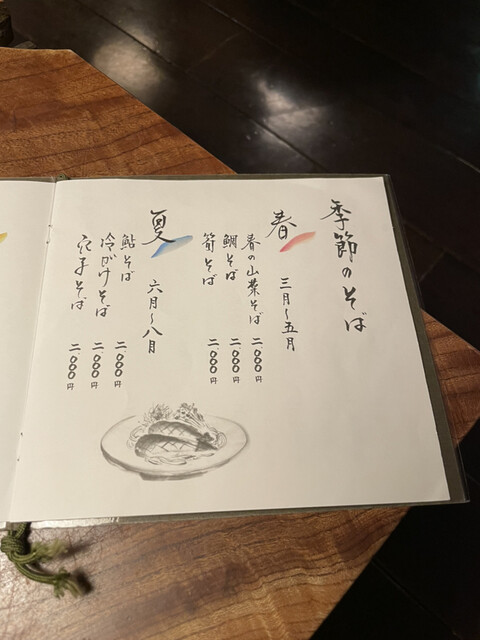 季節のそば
春
三月〜五月
春の山菜そば 二、〇〇〇円
鯛そば 二、〇〇〇円
筍そば 二、〇〇〇円
夏
六月〜八月
鮎そば 二、〇〇〇円
冷かけそば 二、〇〇〇円
穴子そば 二、〇〇〇円